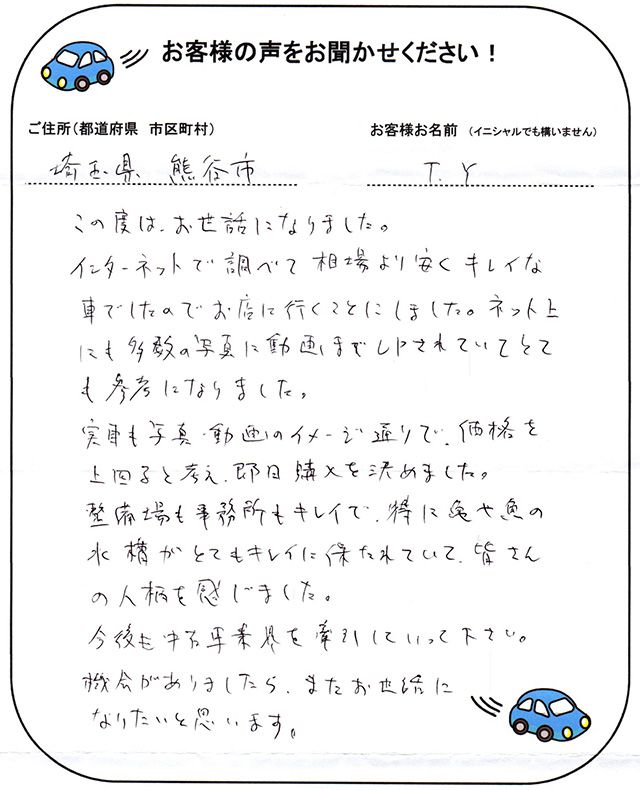 お客様の声をお聞かせください！
ご住所（都道府県　市区町村）
お客様お名前　（イニシャルでも構いません）
埼玉県　熊谷市
T.Y
この度は、お世話になりました。
インターネットで調べて相場より安くキレイな
車でしたのでお店に行くことにしました。ネット上
にも多数の写真に動画までUPされていてとて
も参考になりました。
実車も写真・動画のイメージ通りで、価格を
上回ると考え、即日購入を決めました。
整備場も事務所もキレイで、特に亀や魚の
水槽がとてもキレイに保たれていて、皆さん
の人柄を感じました。
今後も中古車業界を牽引していって下さい。
機会がありましたら、またお世話に
なりたいと思います。